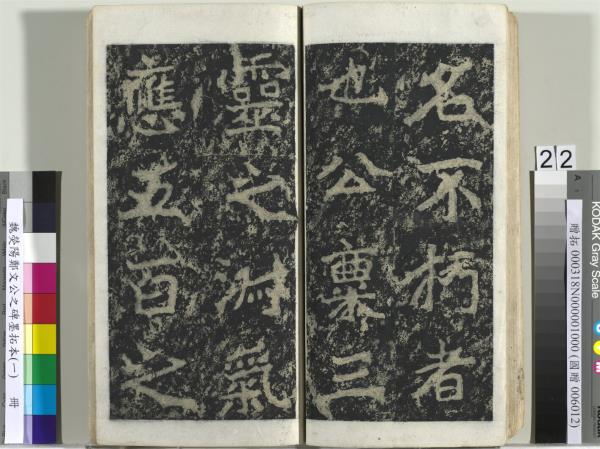 名不朽者
也公稟三
靈之淑氣
應五百之
22
贈拓 000318N000001000 (國贈 006012)
KODAK Gray Scale
魏滎陽鄭文公之碑墨拓本(一) 冊